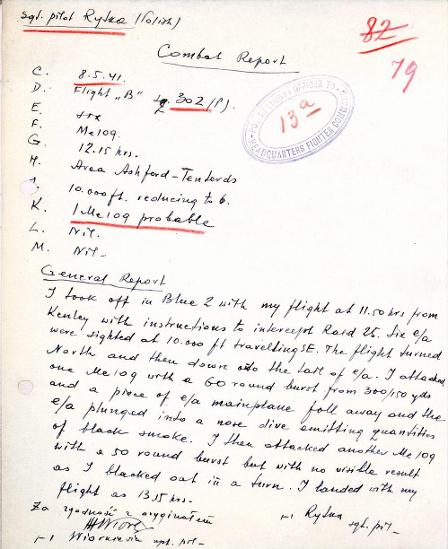 Sgt. pilot Rytka (Polish)
82
79
Combat Report
C. 8.5.41.
D. Flight "B" sq. 302 (P).
E.
F. Me109.
G. 12.15 hrs.
H. Area Ashford-Tenterds
10.000 ft. reducing to 6.
K. 1 Me109 probable
L. Nil.
M. Nil.
13a
HEADQUARTERS FIGHTER COMMAND
General Report
I took off in Blue 2 with my flight at 11.50 hrs from
Kenley with instructions to intercept Raid 25. Six e/a
were sighted at 10.000 ft travelling SE. The flight turned
North and then down onto the tail of e/a. I attacked
one Me109 with a 60 round burst from 300/150 yds
and a piece of e/a mainplane fell away and the
e/a plunged into a nose dive emitting quantities
of black smoke. I then attacked another Me109
with a 50 round burst but with no visible result
as I blacked out in a turn. I landed with my
flight as 13.15 hrs.
Za zgodność z oryginałem
Rytka
sgt. pil.